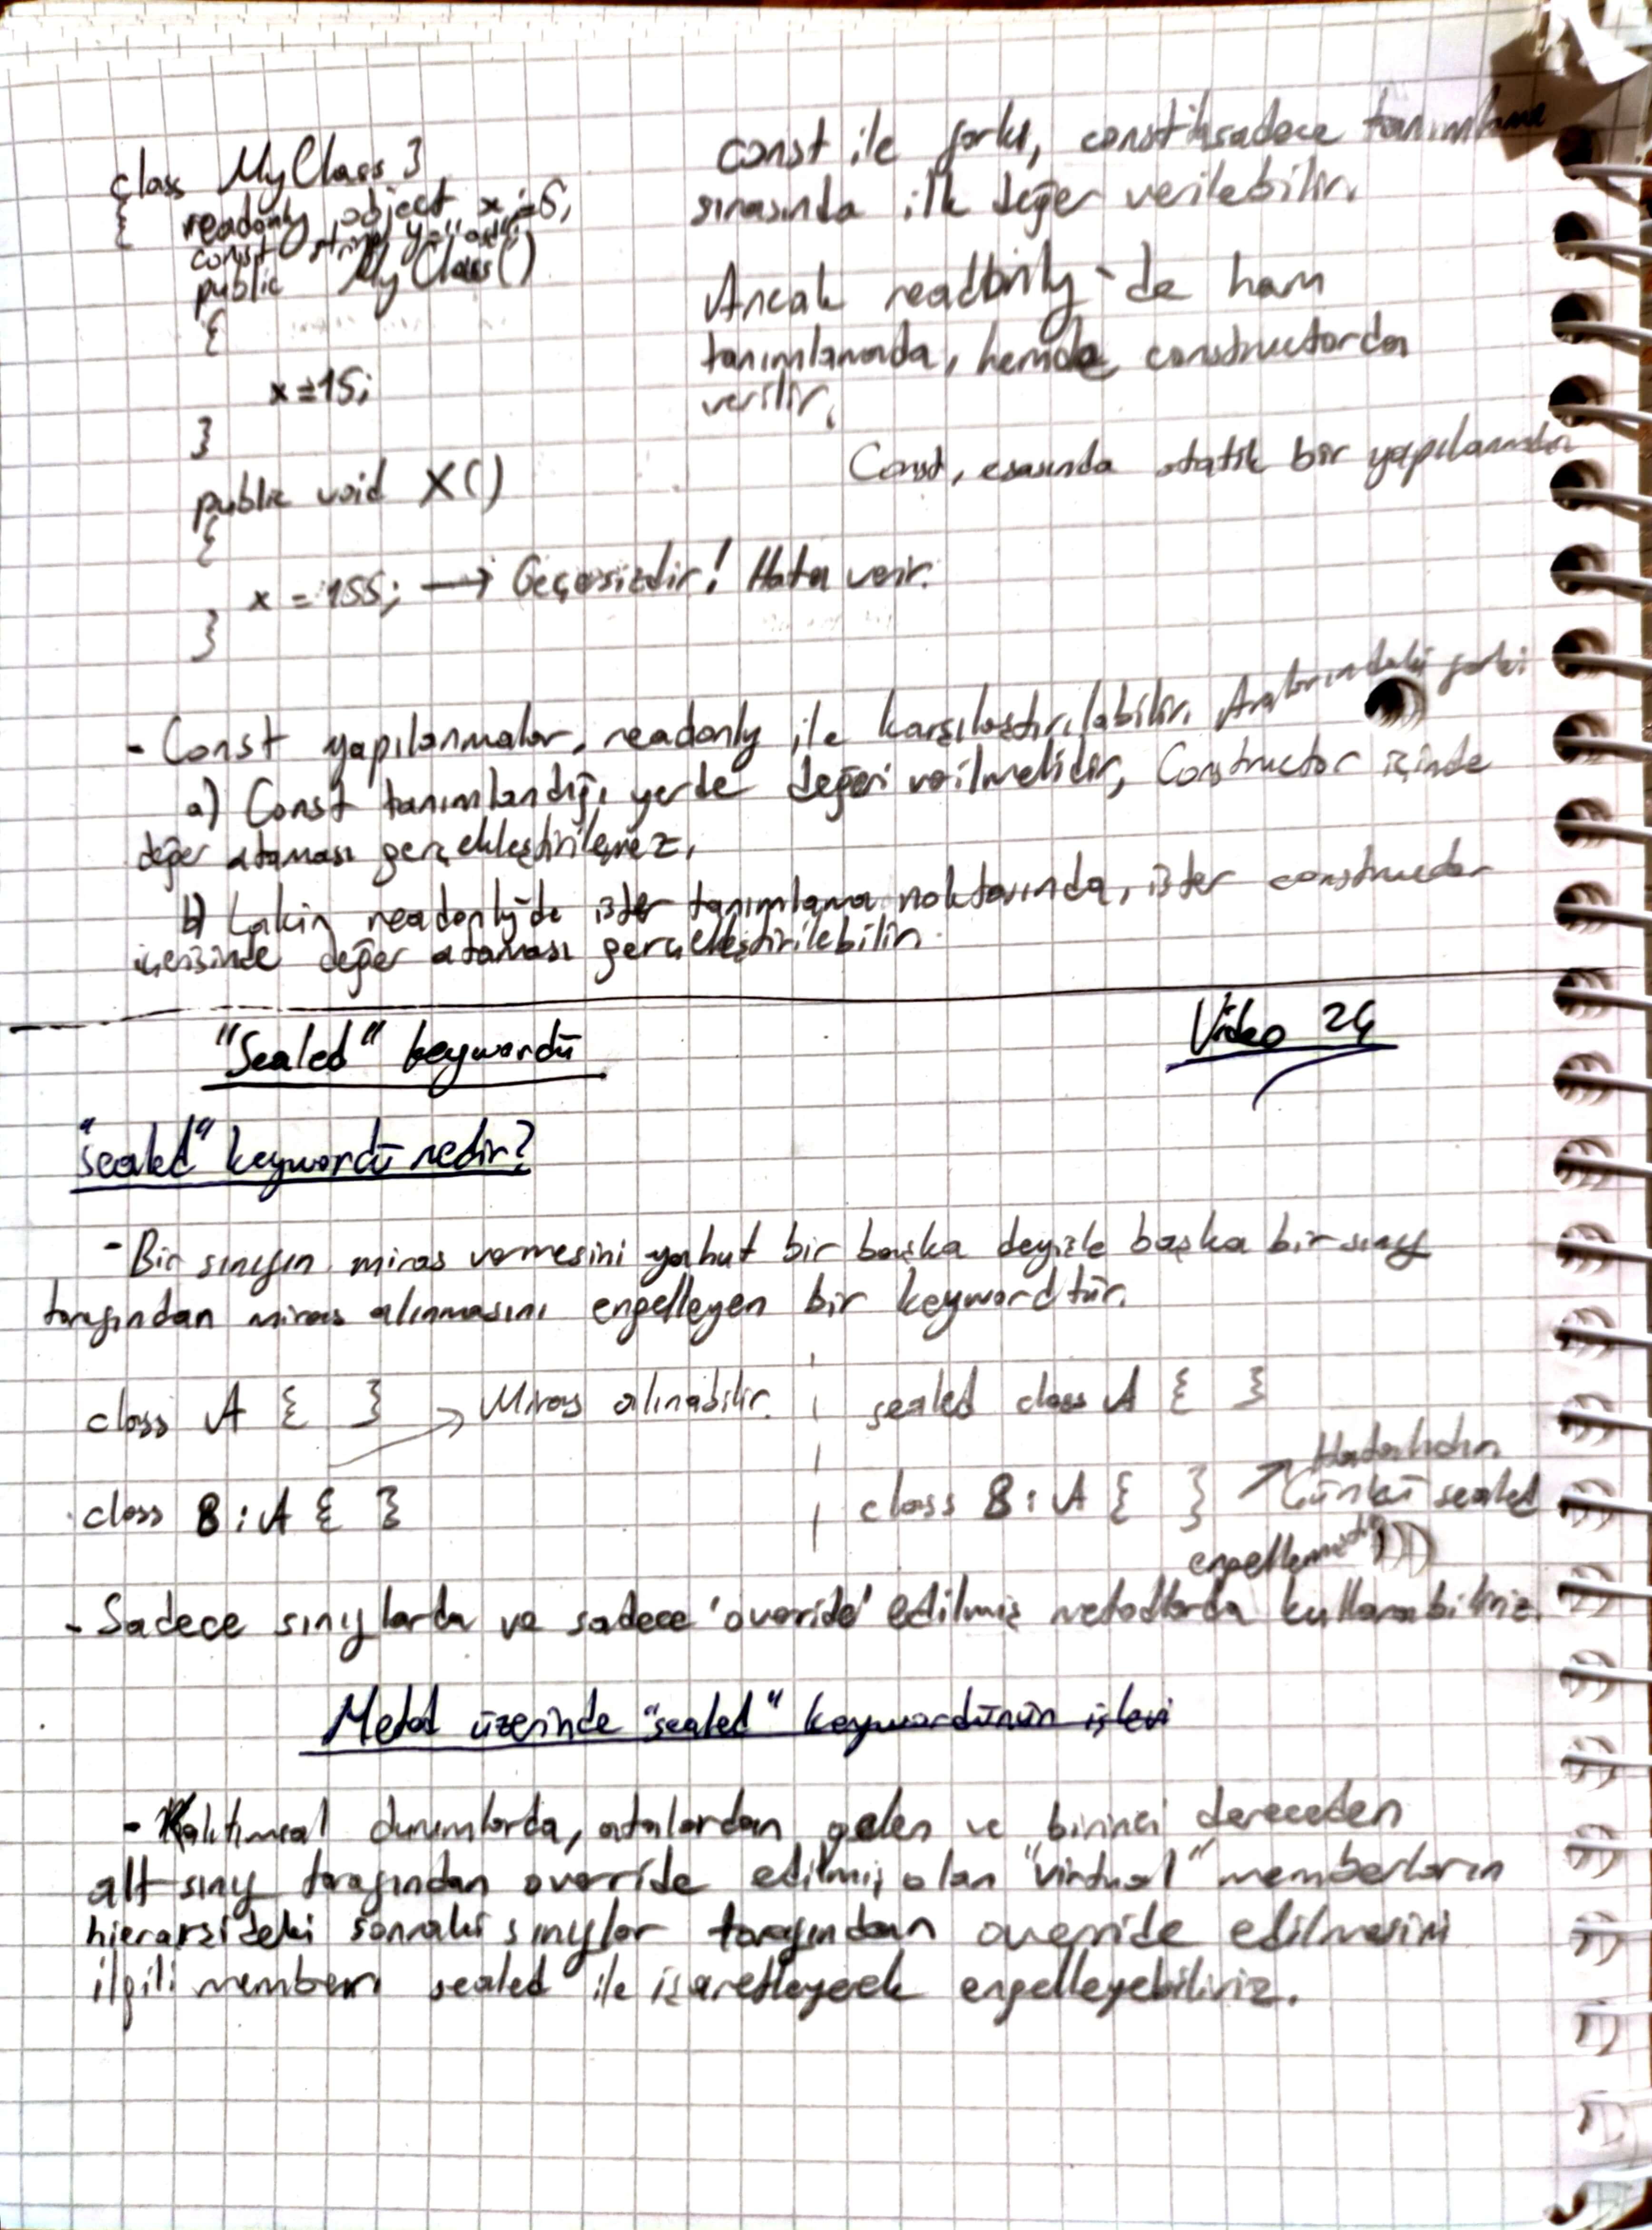 class MyClass }
{ readonly object x = 5;
const string y = "asd";
public MyClass()
{
x = 15;
}
public void X()
{
x = 155; → Geçersizdir! Hata verir.
}
const ile farkı, constta sadece tanımlama
sırasında ilk değer verilebilir.
Ancak readonly-de ham
tanımlamada, hemde constructorda
verilir.
Const, esasında statik bir yapılanmadır
- Const yapılanmalar, readonly ile karşılaştırılabilir. Aralarındaki farkı
a) Const tanımlandığı yerde değeri verilmelidir, Constructor içinde
değer ataması gerçekleştirilemez.
b) Lakin readonlyde ister tanımlama noktasında, ister constructor
içerisinde değer ataması gerçekleştirilebilir.
"Sealed" keywordü
Video 24
"sealed" keywordü nedir?
- Bir sınıfın miras vermesini yahut bir başka deyişle başka bir sınıf
tarafından miras alınmasını engelleyen bir keywordtür.
class A { } → Miras alınabilir.
class B : A { }
sealed class A { }
class B : A { } → Hatalıdır.
Çünkü sealed
engellemektedir
- Sadece sınıflarda ve sadece 'overide' edilmiş metodlarda kullanabiliriz.
Metot üzerinde "sealed" keywordünün işlevi
- Kalıtımsal durumlarda, atalardan gelen ve birinci dereceden
alt sınıf tarafından override edilmiş olan "virtual" memberların
hierarşideki sonraki sınıflar tarafından override edilmesini
ilgili memberı sealed ile işaretleyerek engelleyebiliriz.